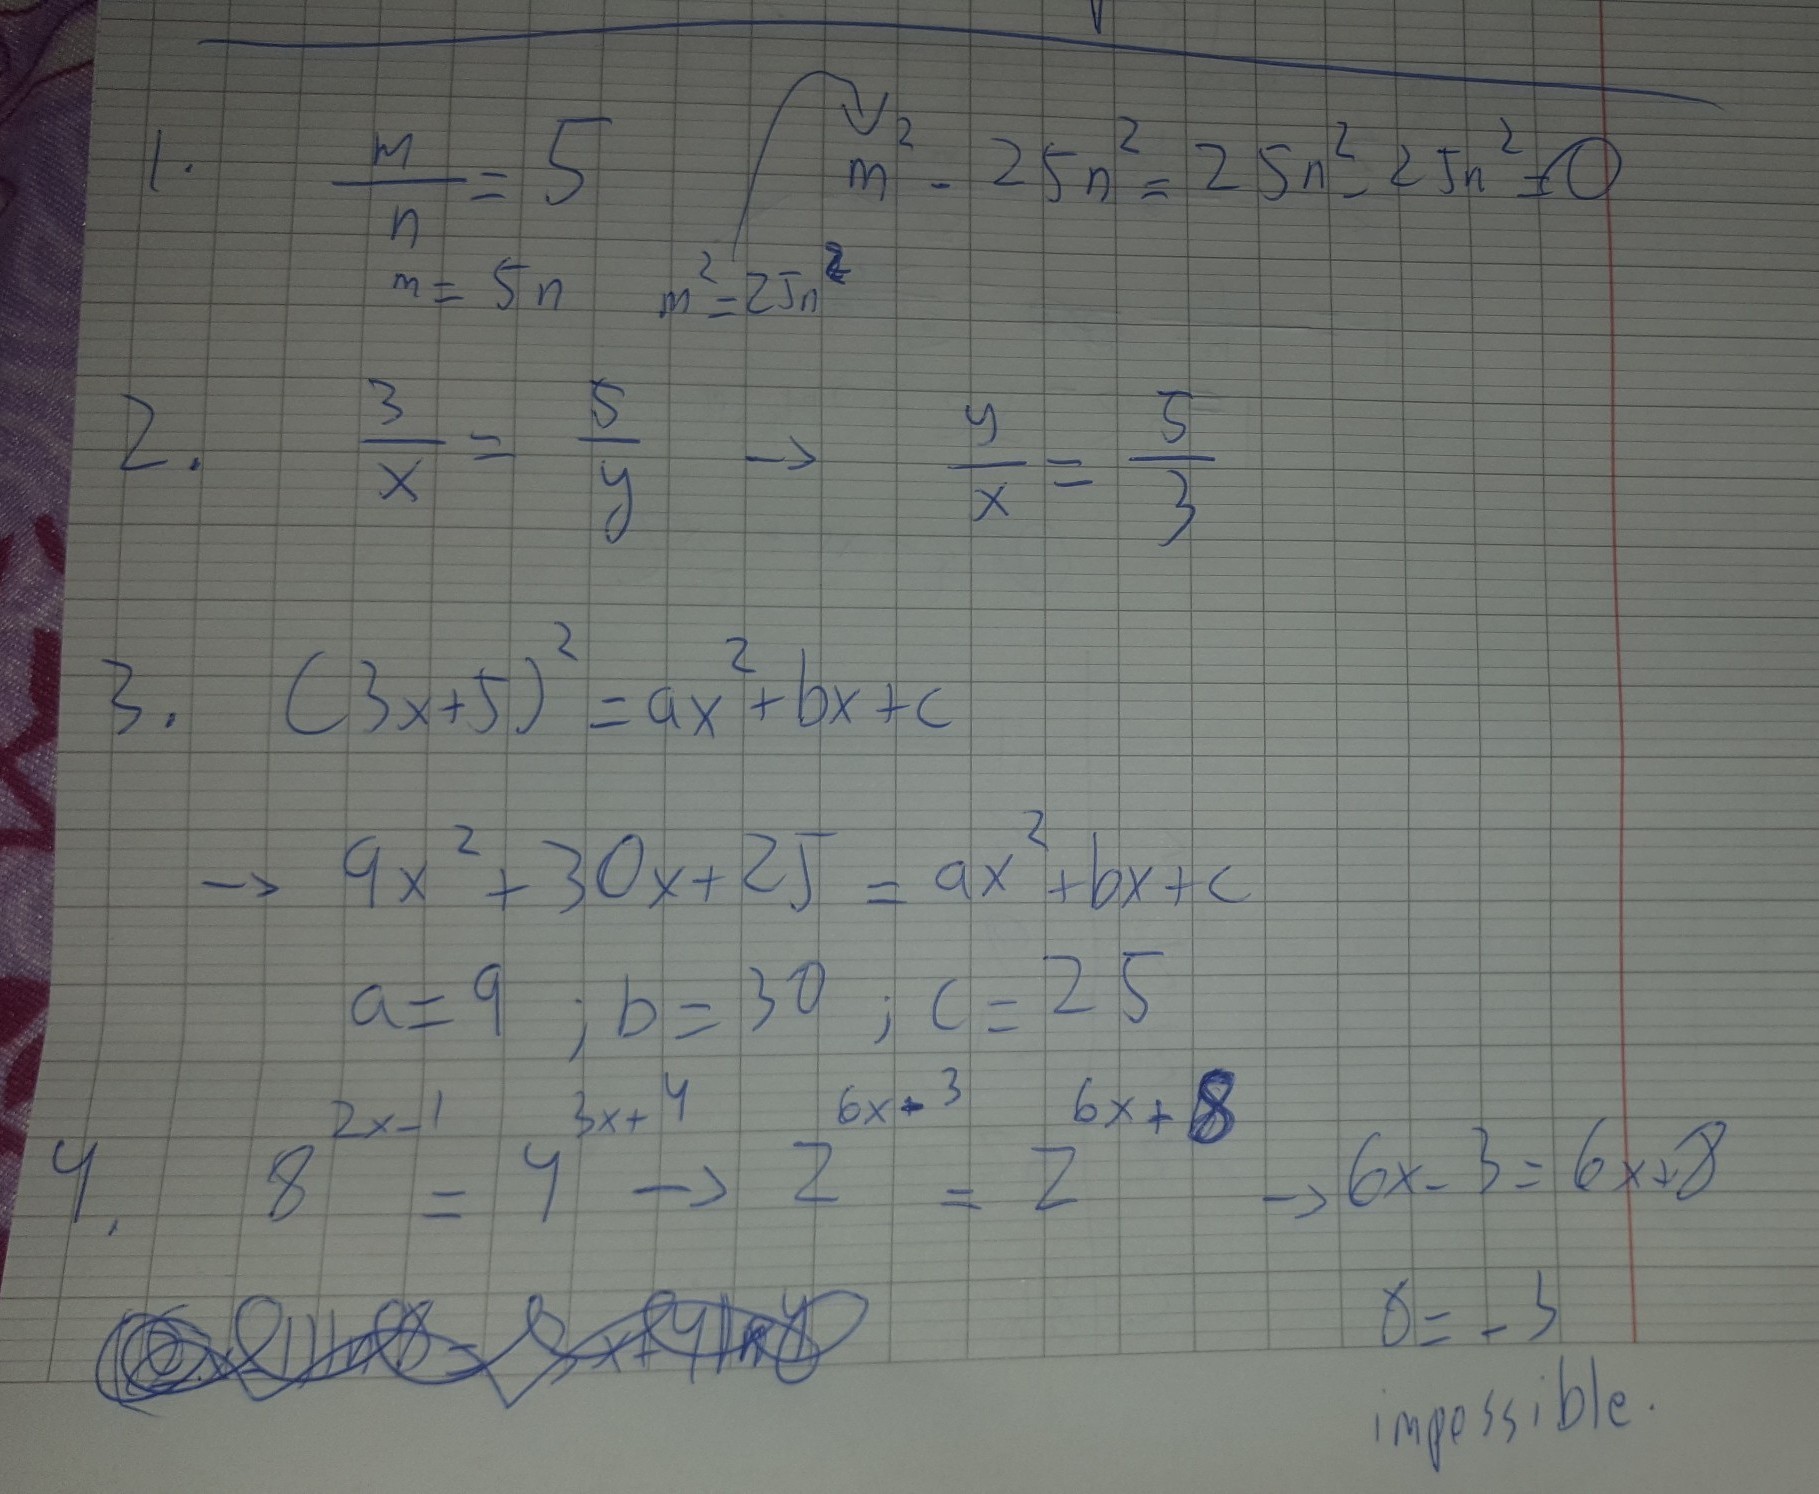 1. m/n = 5 m² - 25n² = 25n² - 25n² = 0
m = 5n m² = 25n²
2. 3/x = 5/y → y/x = 5/3
3. (3x+5)² = ax² + bx + c
→ 9x² + 30x + 25 = ax² + bx + c
a = 9 ; b = 30 ; c = 25
4. 8^(2x-1) = 4^(3x+4) → 2^(6x-3) = 2^(6x+8) → 6x - 3 = 6x + 8
8 = -3
impossible.